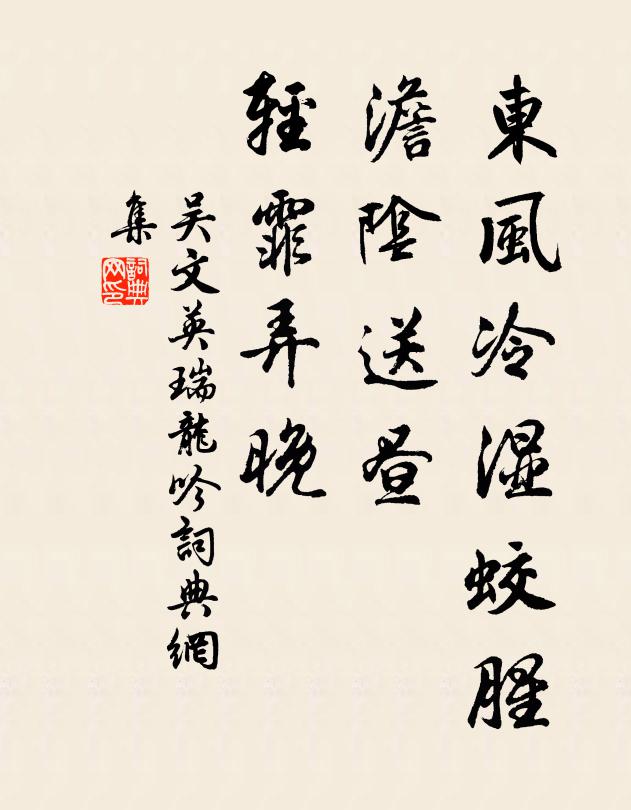 東風冷濕蛟腥
澹陰送晝
輕霏弄晚
吴文英瑞龍吟詞典網
集
詞典
网印